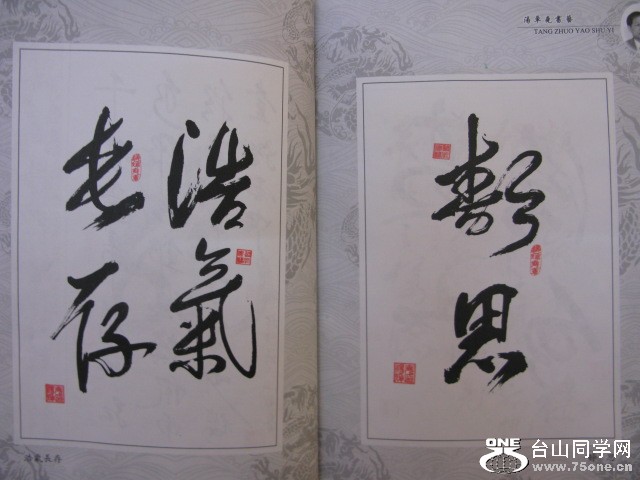 浩氣
長存
浩氣長存
湯卓堯書藝
TANG ZHUO YAO SHU YI
思
ONE
台山同学网
www.75one.cn